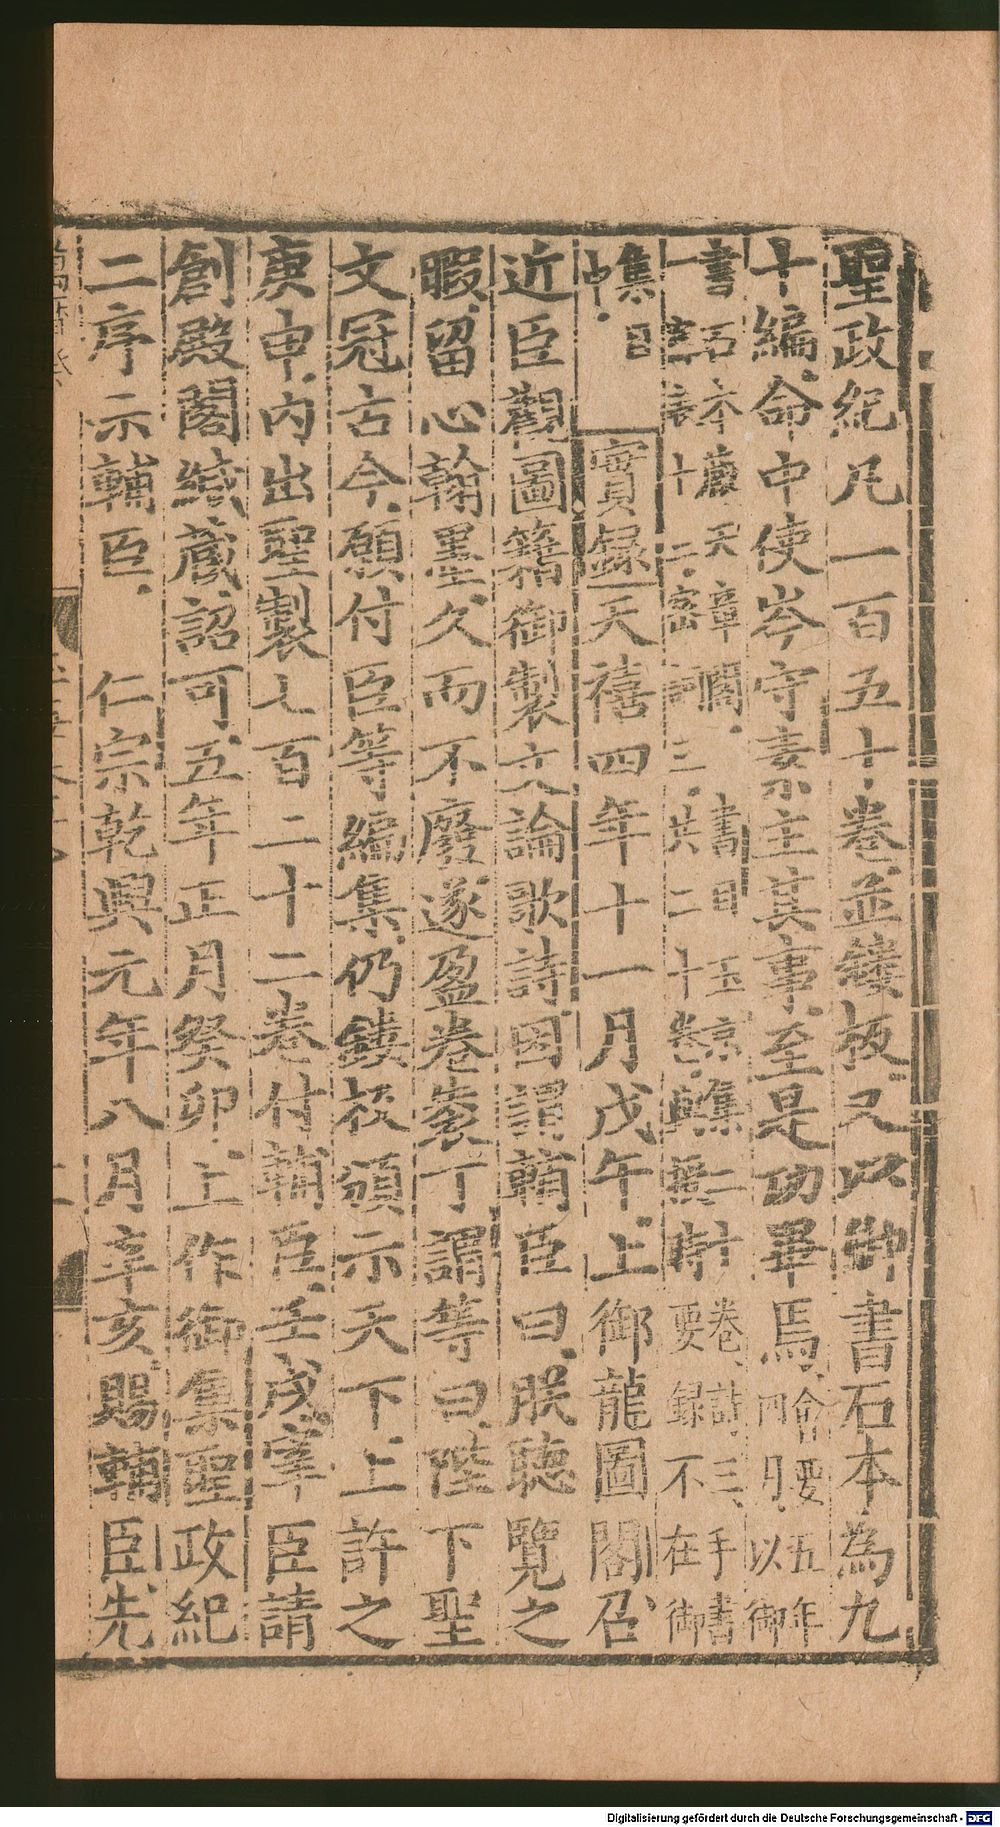 聖政紀凡一百五十卷並鏤板又以御書石本為九
十編命中使岑守素主其事至是功畢焉 會要五年四月以御
書石本藏天章閣 書目玉京集二十卷詩三手書
表十二密詞三共二十卷 時要録不在御
集目中
實録天禧四年十一月戊午上御龍圖閣召
近臣觀圖籍御製文論歌詩因謂輔臣曰朕聽覽之
暇留心翰墨久而不廢遂盈卷袠丁謂等曰陛下聖
文冠古今願付臣等編集仍鏤板頒示天下上許之
庚申內出聖製七百二十二卷付輔臣壬戌宰臣請
創殿閣緘藏詔可五年正月癸卯上作御集聖政紀
二序示輔臣 仁宗乾興元年八月辛亥賜輔臣先
Digitalisierung gefördert durch die Deutsche Forschungsgemeinschaft - DFG